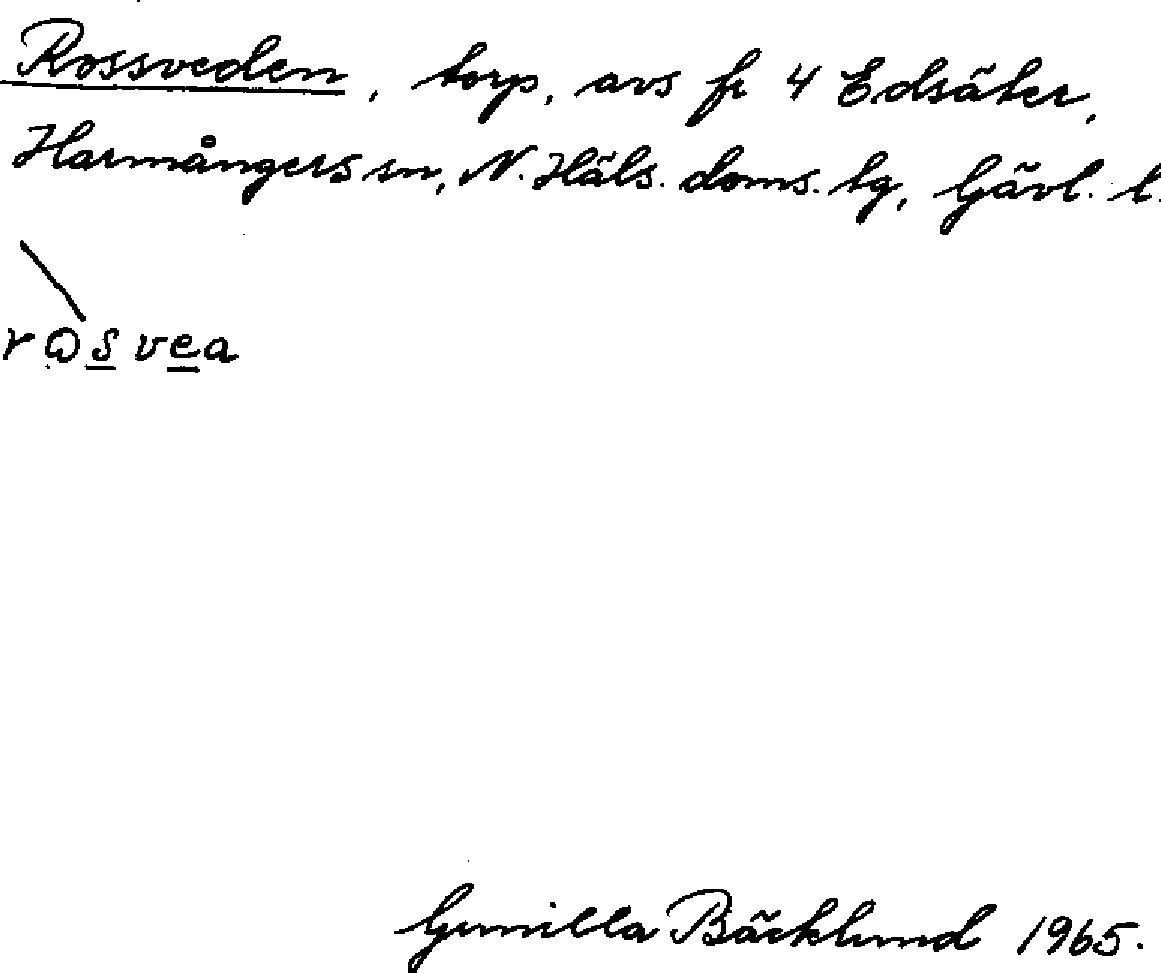 Rossveden, torp, avs fr 4 Edsäter,
Harmångers sn, N. Häls. doms. tg, Gävl. l.
Gunilla Bäcklund 1965.